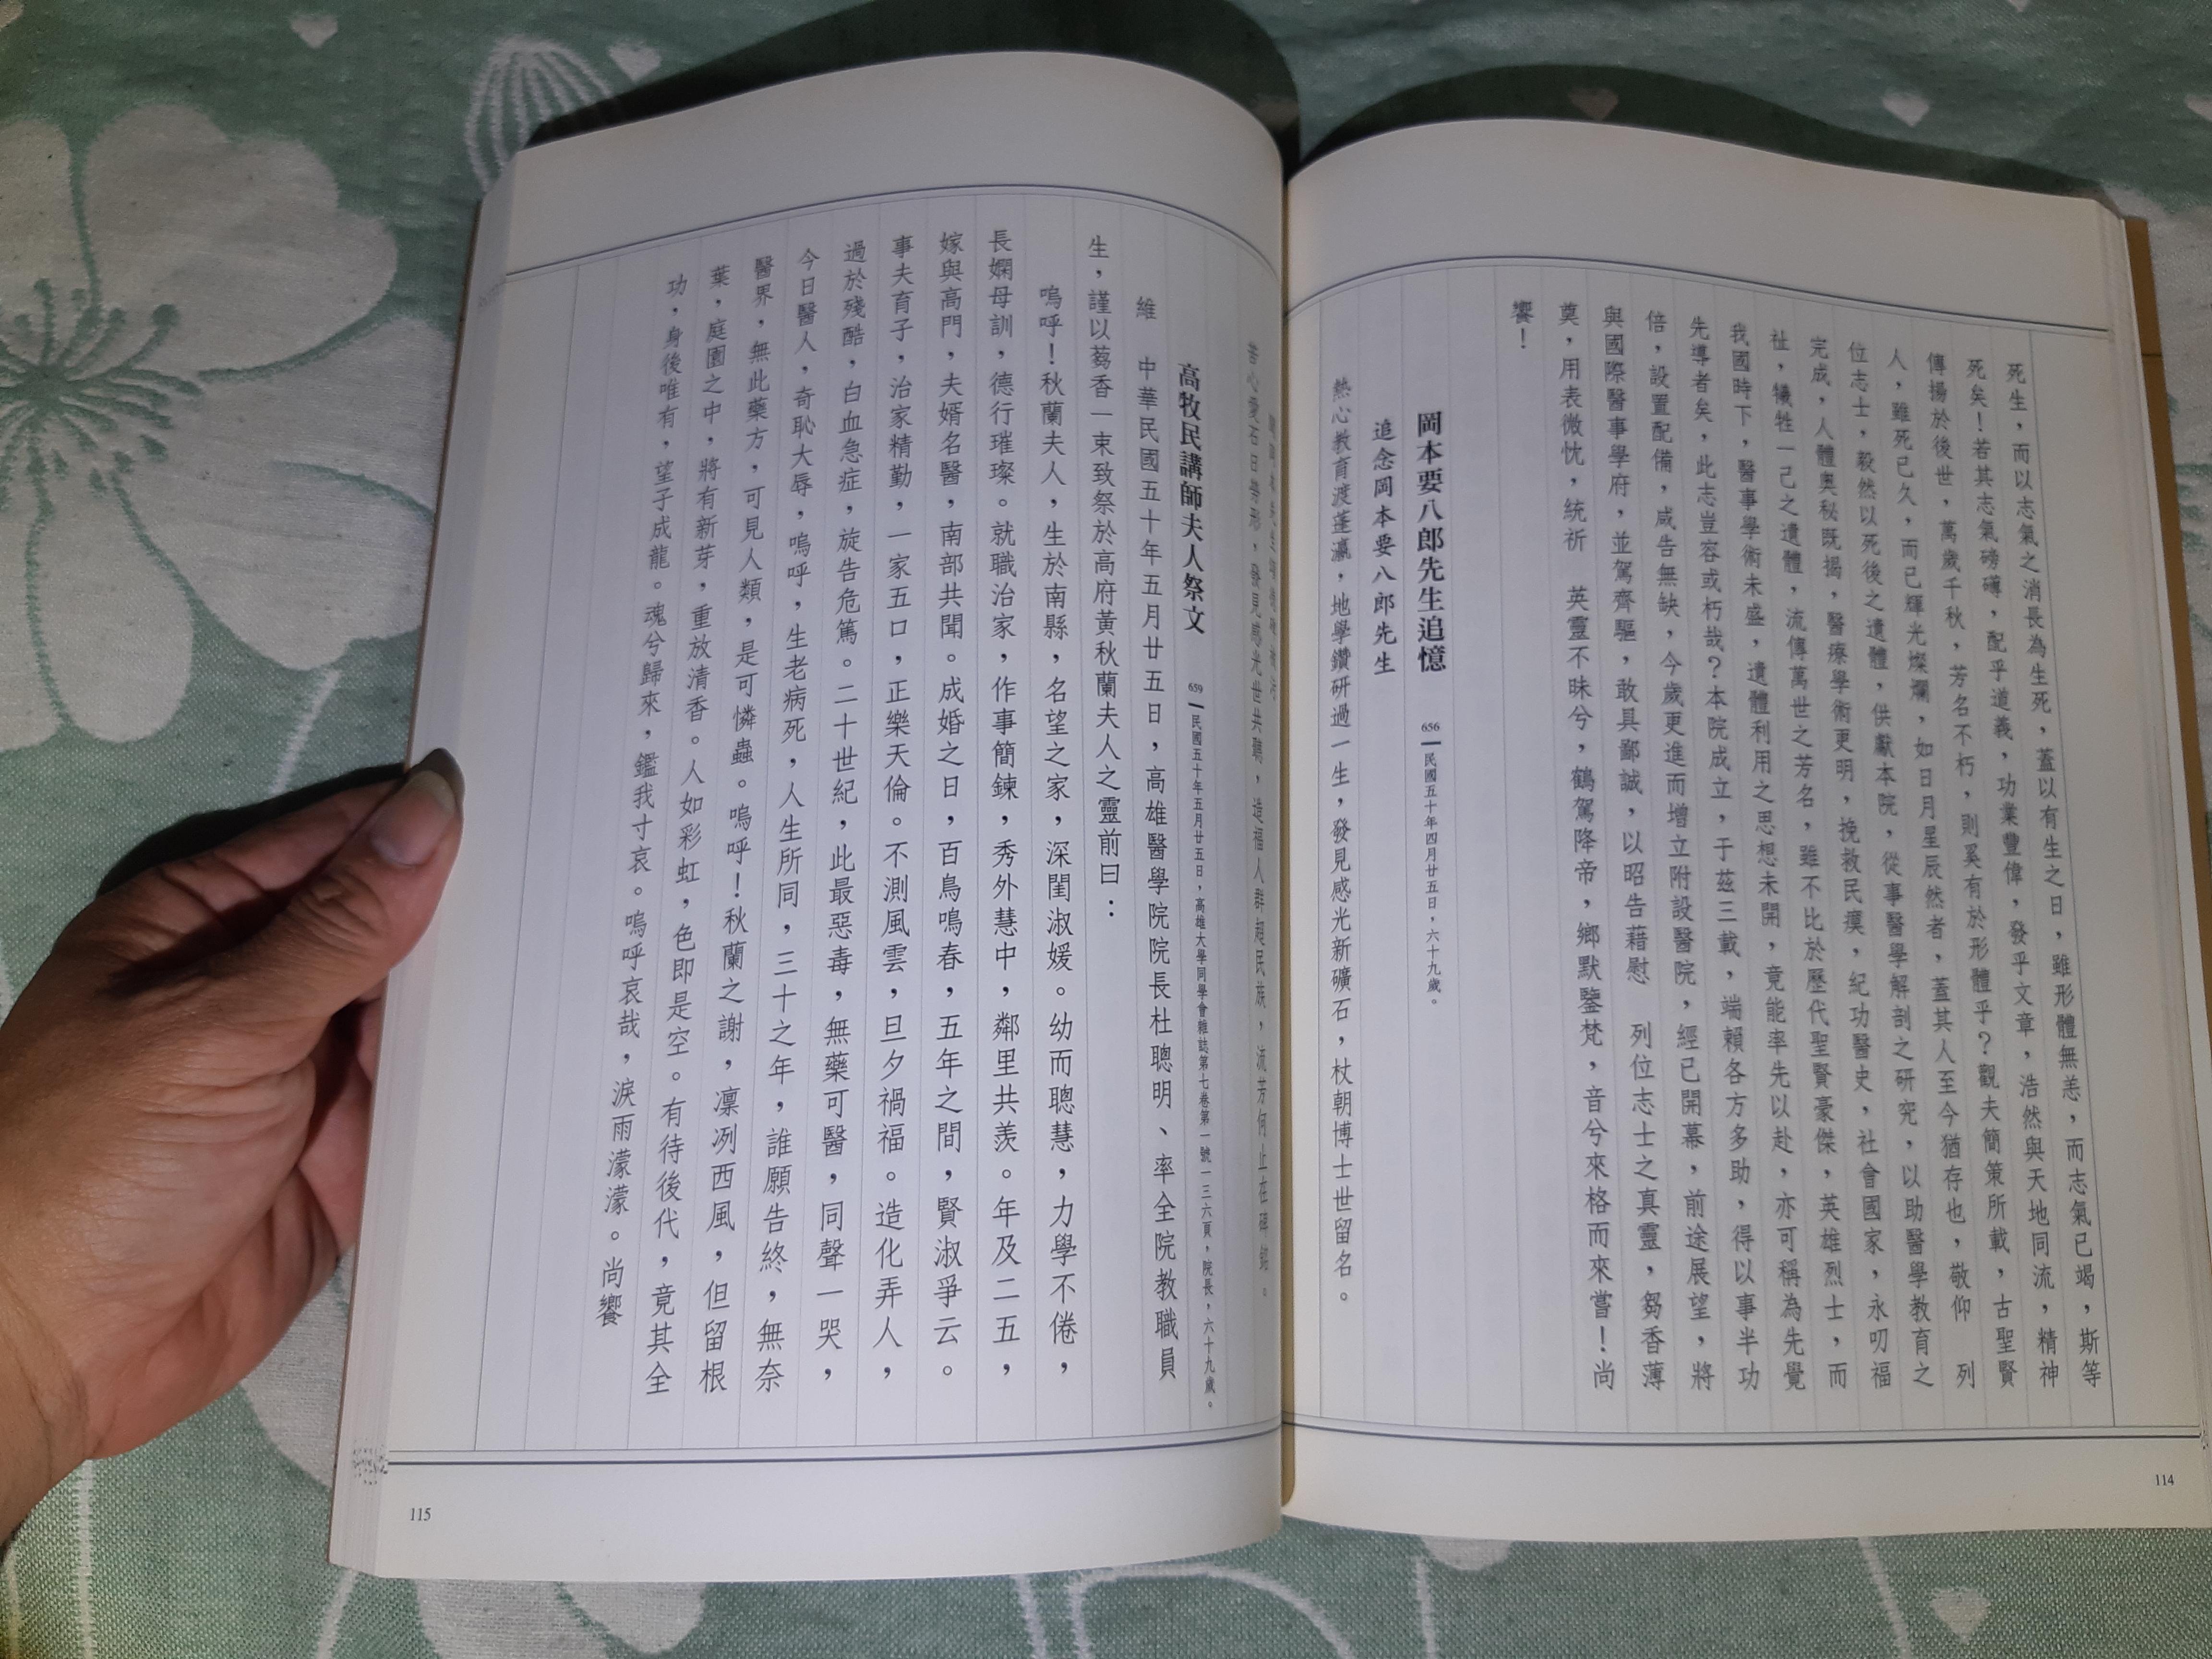 死生，而以志氣之消長為生死，蓋以有生之日，雖形體無恙，而志氣已竭，斯等
死矣！若其志氣磅礡，配乎道義，功業豐偉，發乎文章，浩然與天地同流，精神
傳揚於後世，萬歲千秋，芳名不朽，則奚有於形體乎？觀夫簡策所載，古聖賢
人，雖死已久，而已輝光燦爛，如日月星辰然者，蓋其人至今猶存也，敬仰　列
位志士，毅然以死後之遺體，供獻本院，從事醫學解剖之研究，以助醫學教育之
完成，人體奧秘既揭，醫療學術更明，挽救民瘼，紀功醫史，社會國家，永叨福
祉，犧牲一己之遺體，流傳萬世之芳名，雖不比於歷代聖賢豪傑，英雄烈士，而
我國時下，醫事學術未盛，遺體利用之思想未開，竟能率先以赴，亦可稱為先覺
先導者矣，此志豈容或朽哉？本院成立，于茲三載，端賴各方多助，得以事半功
倍，設置配備，咸告無缺，今歲更進而增立附設醫院，經已開幕，前途展望，將
與國際醫事學府，並駕齊驅，敢具鄙誠，以昭告藉慰　列位志士之真靈，芻香薄
奠，用表微忱，統祈　英靈不昧兮，鶴駕降帝，鄉默鑒梵，音兮來格而來嘗！尚
饗！
岡本要八郎先生追憶　656 民國五十年四月廿五日，六十九歲。
追念岡本要八郎先生
熱心教育渡蓬瀛，地學鑽研過一生，發見感光新礦石，杖朝博士世留名。
苦心愛石日等形，發見感光世共聽，造福人群超民族，流芳何止在碑銘。
高牧民講師夫人祭文　659 民國五十年五月廿五日，高雄大學同學會雜誌第七卷第一號一三六頁，院長，六十九歲。
維　中華民國五十年五月廿五日，高雄醫學院院長杜聰明、率全院教職員
生，謹以蒭香一束致祭於高府黃秋蘭夫人之靈前曰：
嗚呼！秋蘭夫人，生於南縣，名望之家，深閨淑媛。幼而聰慧，力學不倦，
長嫻母訓，德行璀璨。就職治家，作事簡鍊，秀外慧中，鄰里共羨。年及二五，
嫁與高門，夫婿名醫，南部共聞。成婚之日，百鳥鳴春，五年之間，賢淑爭云。
事夫育子，治家精勤，一家五口，正樂天倫。不測風雲，旦夕禍福。造化弄人，
過於殘酷，白血急症，旋告危篤。二十世紀，此最惡毒，無藥可醫，同聲一哭，
今日醫人，奇恥大辱，嗚呼，生老病死，人生所同，三十之年，誰願告終，無奈
醫界，無此藥方，可見人類，是可憐蟲。嗚呼！秋蘭之謝，凜冽西風，但留根
葉，庭園之中，將有新芽，重放清香。人如彩虹，色即是空。有待後代，竟其全
功，身後唯有，望子成龍。魂兮歸來，鑑我寸哀。嗚呼哀哉，淚雨濛濛。尚饗
115
114